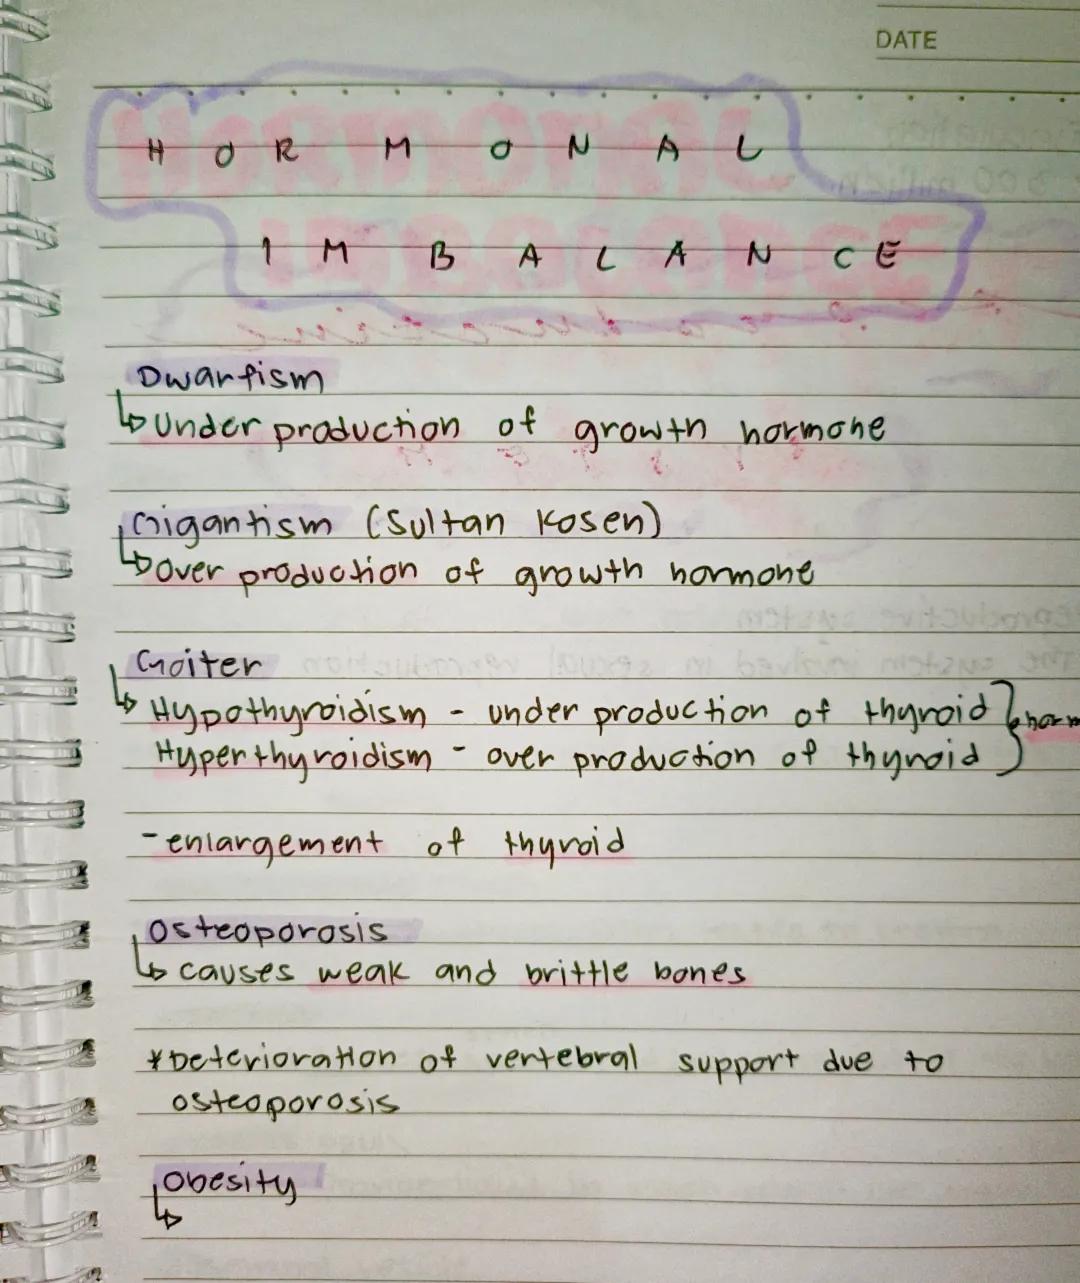 DATE
HORMONAL
IMBALANCE
Dwarfism
↳ Under production of growth hormone
Gigantism (Sultan Kosen)
↳ Over production of growth hormone
Goiter
↳ Hypothyroidism - under production of thyroid } horm
Hyperthyroidism - over production of thyroid
- enlargement of thyroid
Osteoporosis
↳ causes weak and brittle bones
* Deterioration of vertebral support due to
osteoporosis
Obesity
↳